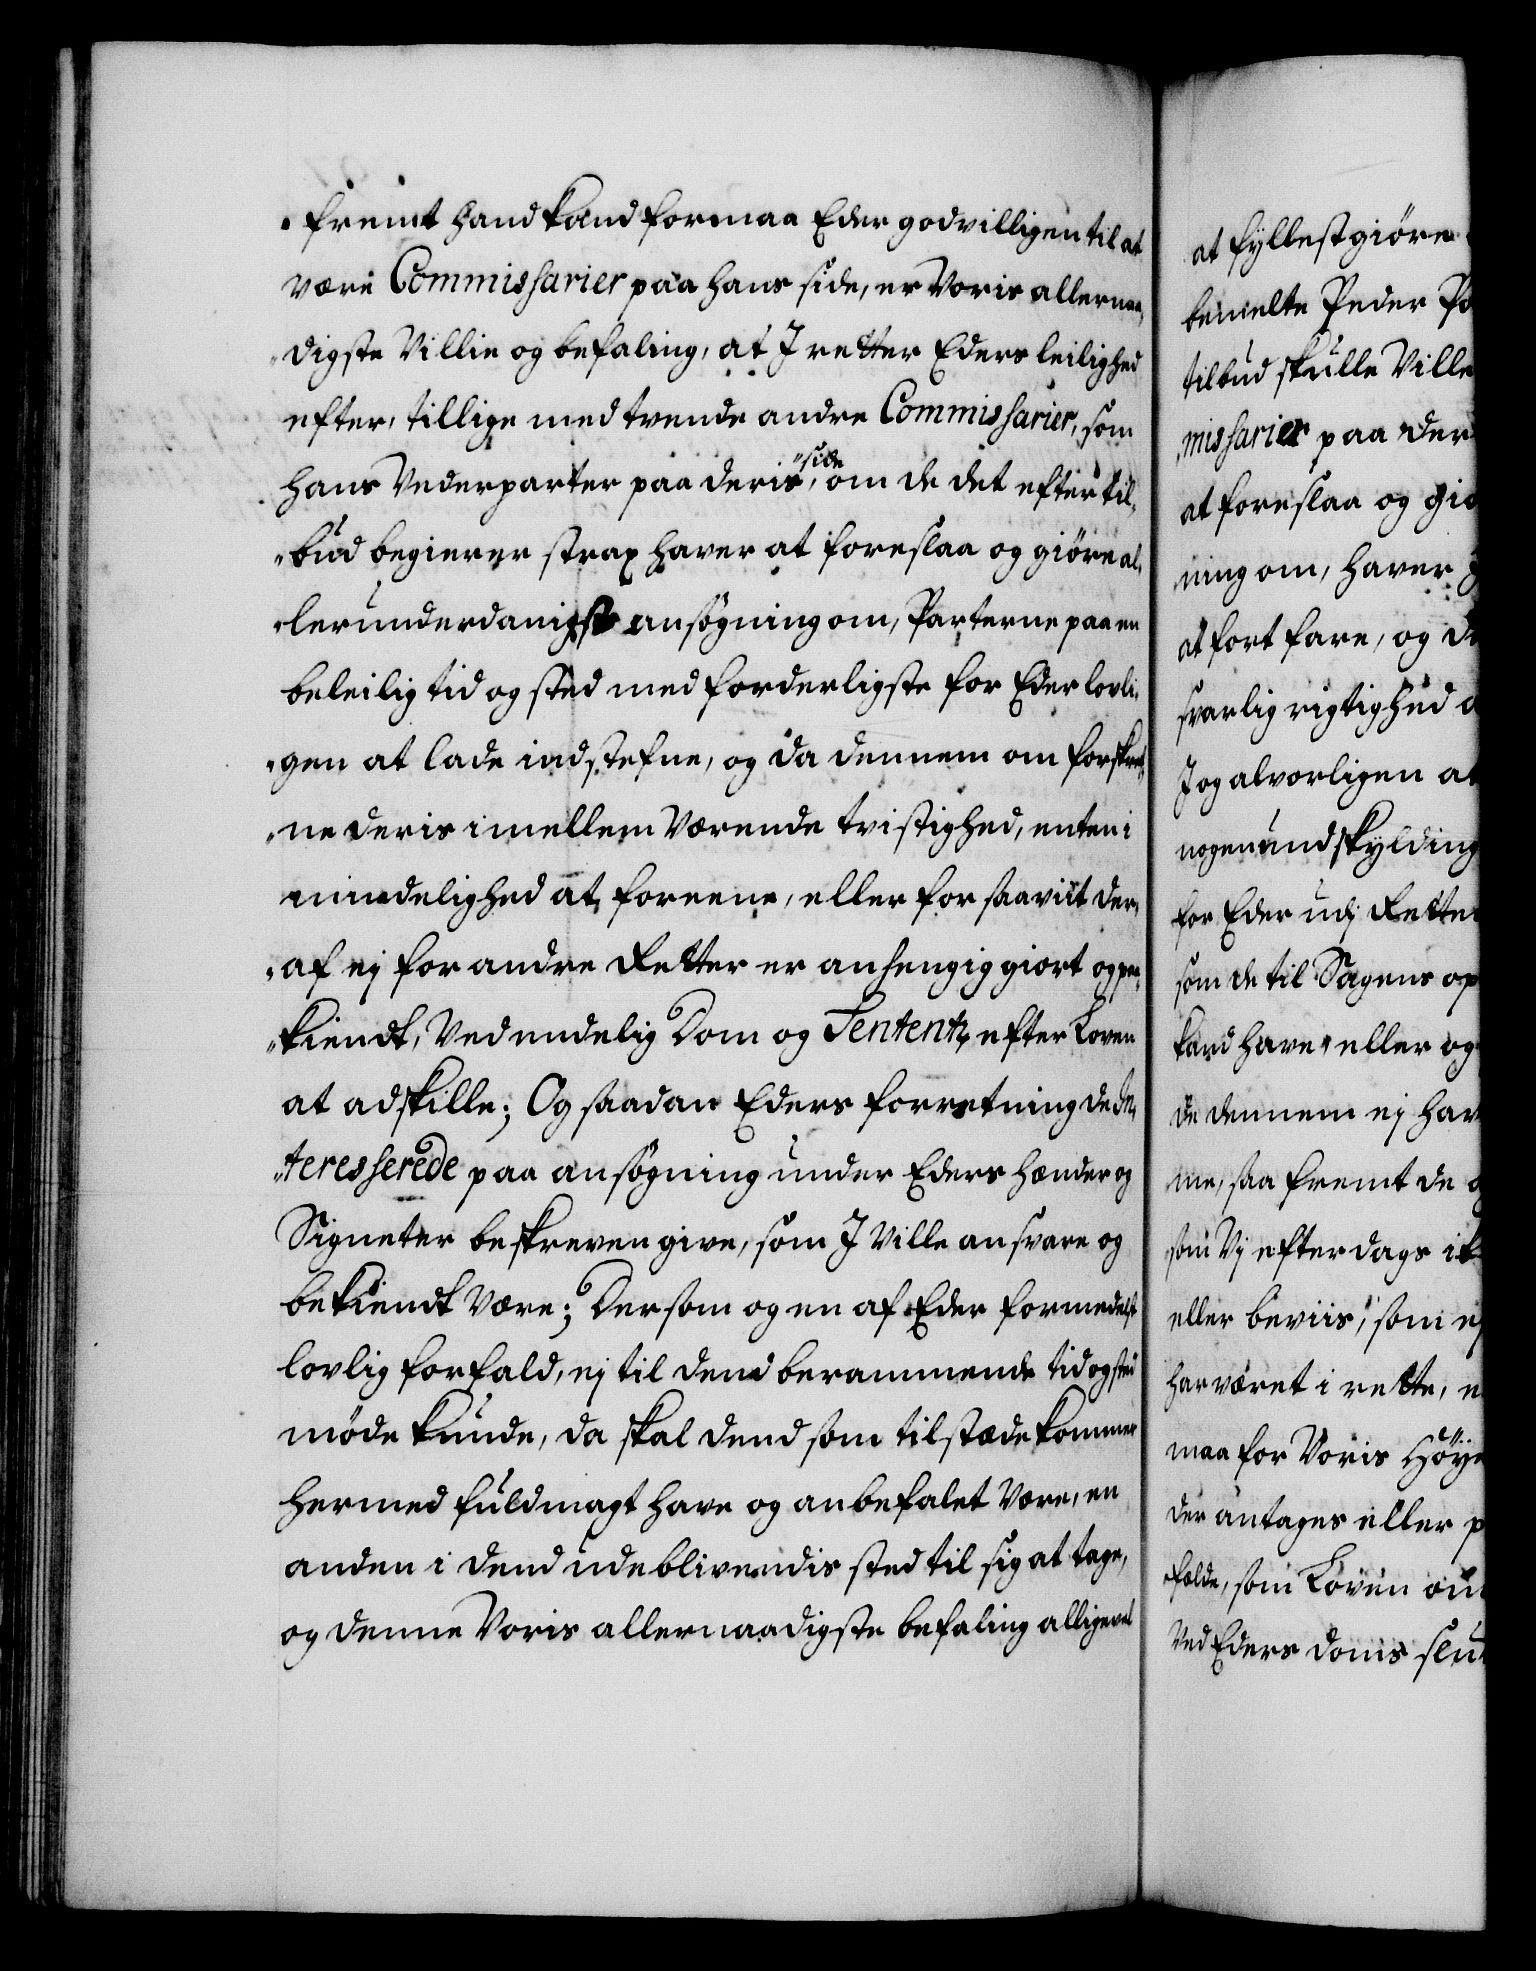 fremt hand kand formaa Eder godvilligen til at
være Commissarier paa hans side, er Voris allernaa,
digste Villie og befaling, at J retter Eders leilighed
efter, tillige med tvende andre Commissarier, som
hans Vederparter paa deris "side, om de det efter til,
"bud begierer strax haver at foreslaa og giöre al,
"lerunderdanigst ansögning om, Parterne paa en
beleilig tid og sted med forderligste for Eder lovli,
"gen at lade indstefne, og da dennem om forskref,
"ne deris imellem Værende tvistighed, enten i
mindelighed at foreene, eller for saaviit der,
"af ej for andre Retter er anhengig giort og paa,
"kiendt, Ved endelig Dom og Sententz efter Loven
at adskille; Og saadan Eders forretning de In,
"teresserede paa ansögning under Eders hænder og
Signeter beskreven give, som J Ville ansvare og
bekiendt være; Dersom og en af Eder formedelst
lovlig forfald, ej til dend berammende tid og sted
möde kunde, da skal dend som tilstæde kommer
hermed fuldmagt have og anbefalet være, en
anden i dend udeblivendis sted til sig at tage,
og denne Voris allernaadigste befaling alligevel
at fyllestgiöre
bemelte Peder
tilbud skulle Ville
missarier paa der
at foreslaa og
ning om, haver
at fort fare, og
svarlig rigtighed
J og alvorligen at
nogen undskylding
for Eder udj Rette
som de til Sagens
kand have, eller og
de dennem ej har
me, saa fremt de
som Vj efterdags
eller beviis, som ej
har været i rette,
maa for Voris Höye
der antages eller
fælde, som Loven om
Ved Eders doms